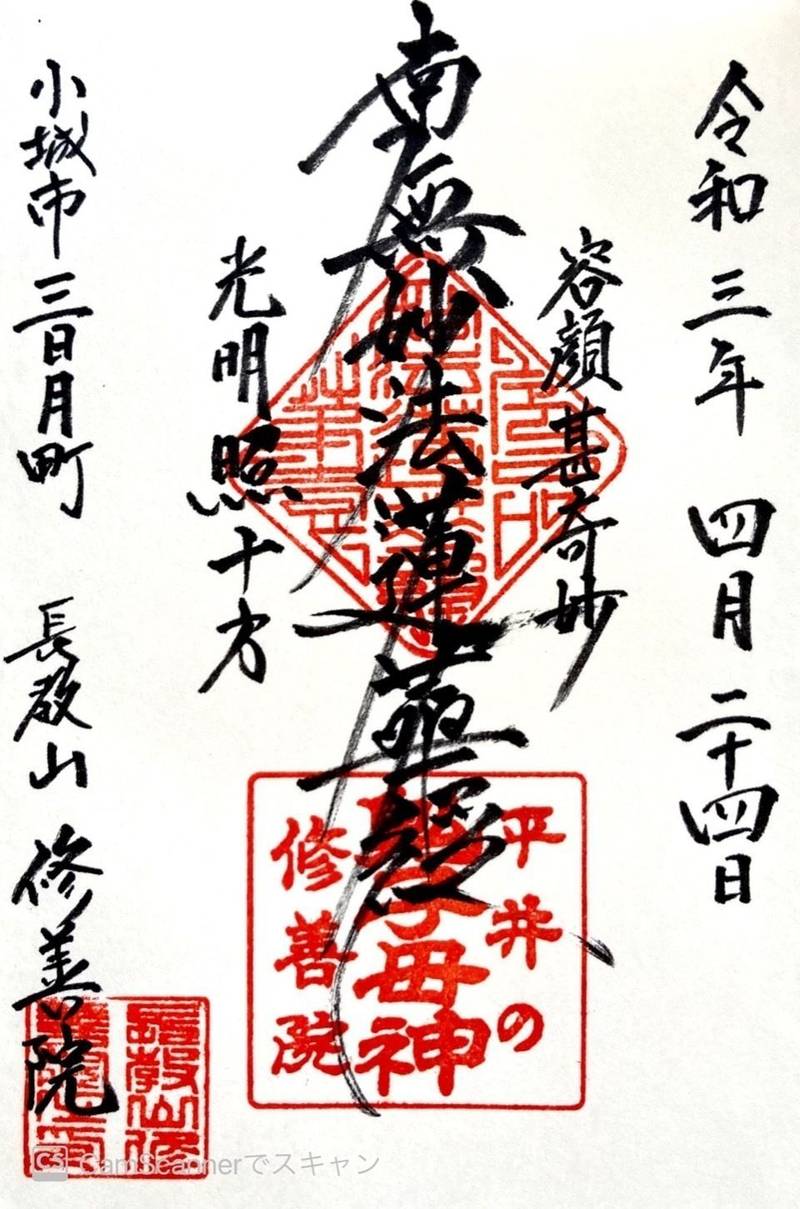 令和三年 四月二十四日
容顔甚奇妙
南無妙法蓮華経
光明照十方
小城市三日月町 長教山 修善院
平井の
鬼子母神
修善院
CS CamScannerでスキャン